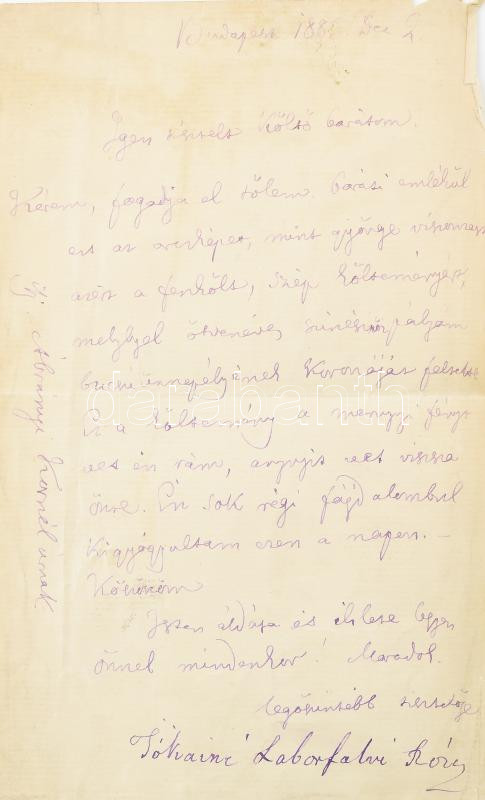 Budapest 188 Dec 2.
Igen tisztelt Költő barátom.
Kérem, fogadja el tőlem baráti emlékül
ezt az arczképet, mint gyönge viszonzást
azért a fenkölt, szép költeményért,
melylyel ötvenéves színészi pályám
búcsúünnepélyének koronáját feltette
Ez a költemény a mennyi fényt
vet én rám, annyit vet vissza
önre. Én sok régi fájdalombul
kigyógyultam ezen a napon. –
Köszönöm
Isten áldása és ihlete legyen
önnel mindenkor! Maradok
legőszintébb tisztelője
Jókainé Laborfalvi Róza
ifj. Ábrányi Kornél úrnak
darabanth